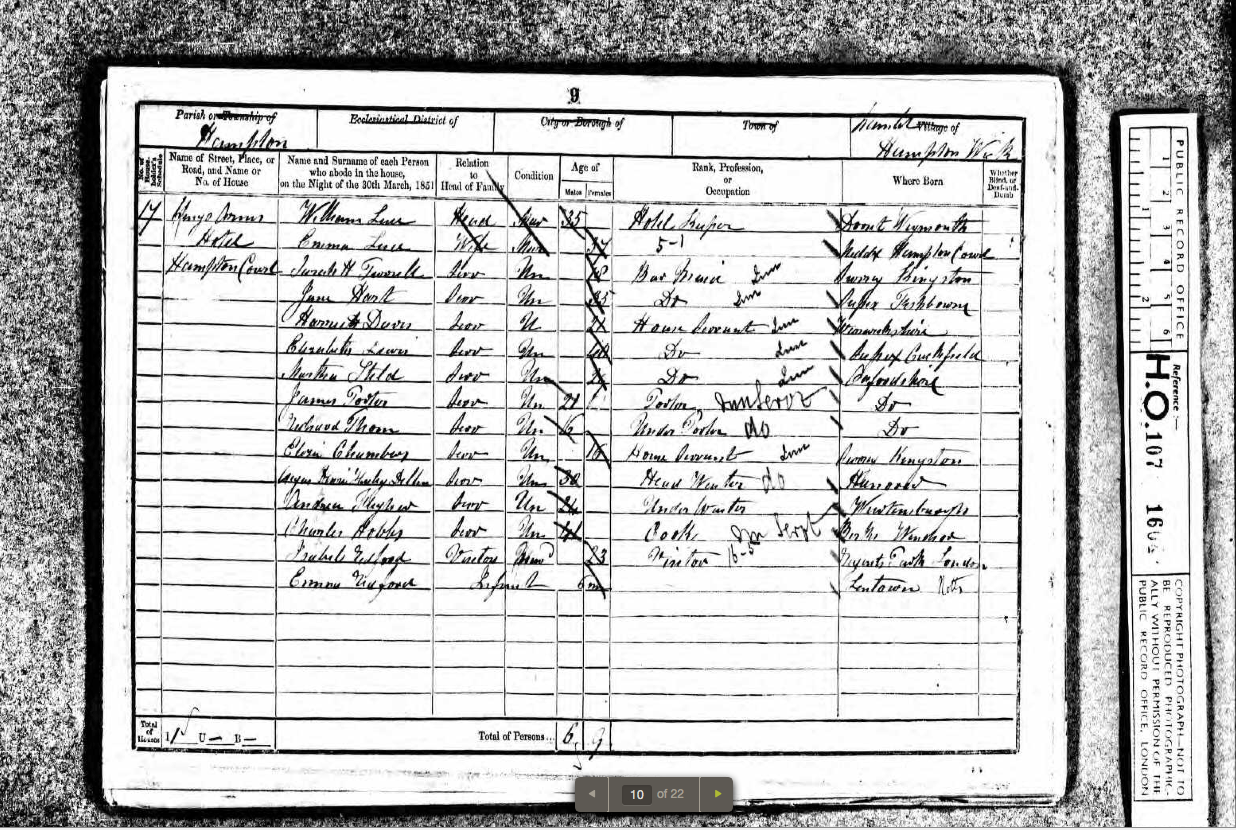 9
Parish or Township of
Hampton
Ecclesiastical District of
City or Borough of
Town of
Hamlet Village of
Hampton Wick
No. of House-holder's Schedule
Name of Street, Place, or Road, and Name or No. of House
Name and Surname of each Person who abode in the house, on the Night of the 30th March, 1851
Relation to Head of Family
Condition
Age of
Males
Females
Rank, Profession, or Occupation
Where Born
Whether Blind, or Deaf-and-Dumb
17 Kings Arms William Luce Head Mar 35 Hotel Keeper Dorset Weymouth
Hotel Emma Luce Wife Mar 37 5-1 Middx Hampton Court
Hampton Court Serv Un 18 Bar Maid Inn Surrey Kingston
Jane Hart Serv Un 35 Do Inn
Harriett Davis Serv U House Servant Inn Warwickshire
Elizabeth Lewis Serv Un Do Inn Sussex Cuckfield
Martha Serv Un Do Inn Oxfordshire
James Porter Serv Un 21 Porter Inn Servt Do
Richard Serv Un 16 Under Porter do Do
Eliza Chambers Serv Un 16 House Servant Inn Surrey Kingston
Serv Un 30 Head Waiter do Hanover
Andrew Serv Un 24 Under Waiter
Charles Hobbs Serv Un 41 Cook Inn Servt Berks Windsor
Isabella Visitor 23 Visitor 16-5 Regents Park London
Emma Infant 6m
Total of Houses 1 U— B—
Total of Persons... 6 9
10 of 22
PUBLIC RECORD OFFICE
1 2 3 4 5 6
1 2
Reference:—
H.O. 107 1604
COPYRIGHT PHOTOGRAPH—NOT TO
BE REPRODUCED PHOTOGRAPHIC-
ALLY WITHOUT PERMISSION OF THE
PUBLIC RECORD OFFICE, LONDON